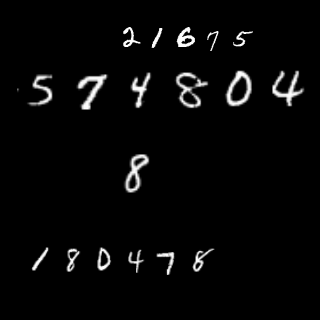 21675
574804
8
180478